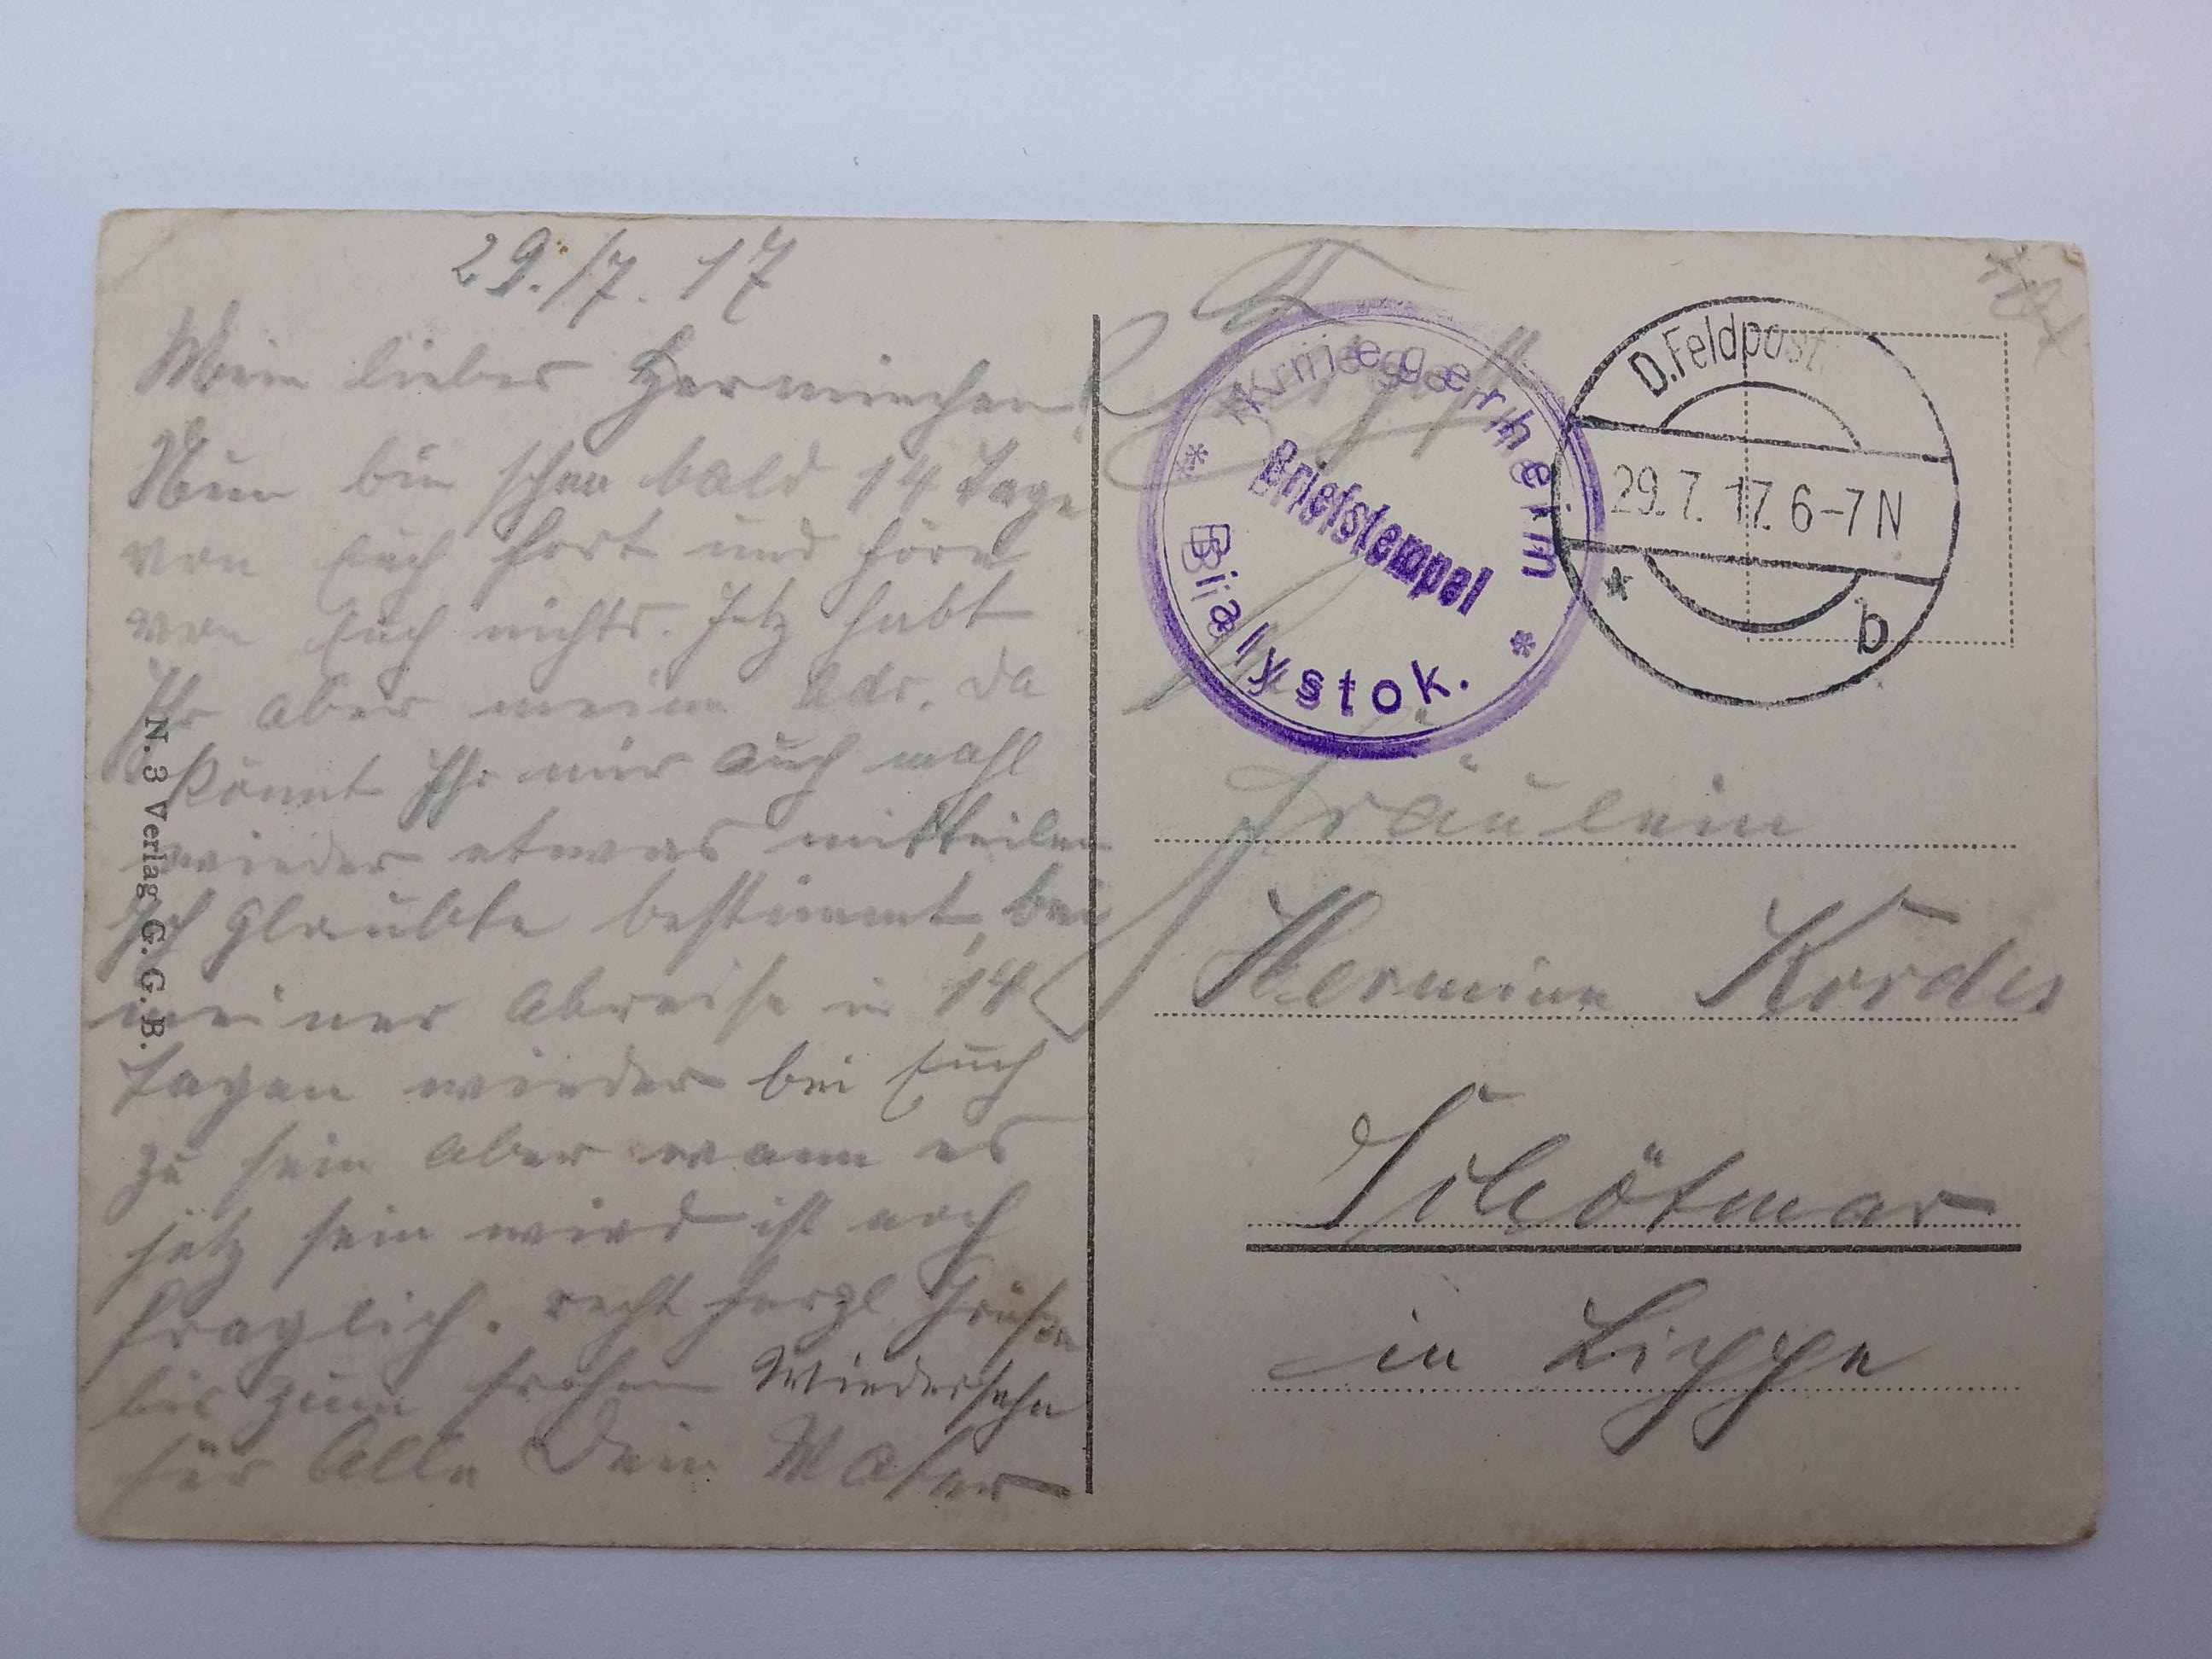 29./7. 17
Mein liebes Herminchen
Nun bin schon bald 14 Tage
von Euch fort und höre
von Euch nichts. Jetz habt
Ihr aber meine Adr. da
könnt Ihr mir auch mahl
wieder etwas mitteilen
Ich glaubte bestimmt, bei
meiner Abreise in 14
Tagen wieder bei Euch
zu sein aber wann es
jetz sein wird ist noch
fraglich. recht herzl Grüße
bis zum frohen Wiedersehn
für Alle Dein Vater
N. 3 Verlag G. G. B.
Kriegerheim
Briefstempel
Bialystok.
D. Feldpost.
29.7.17. 6-7N
* b
Fräulein
Hermine Kordes
Schötmar
in Lippe